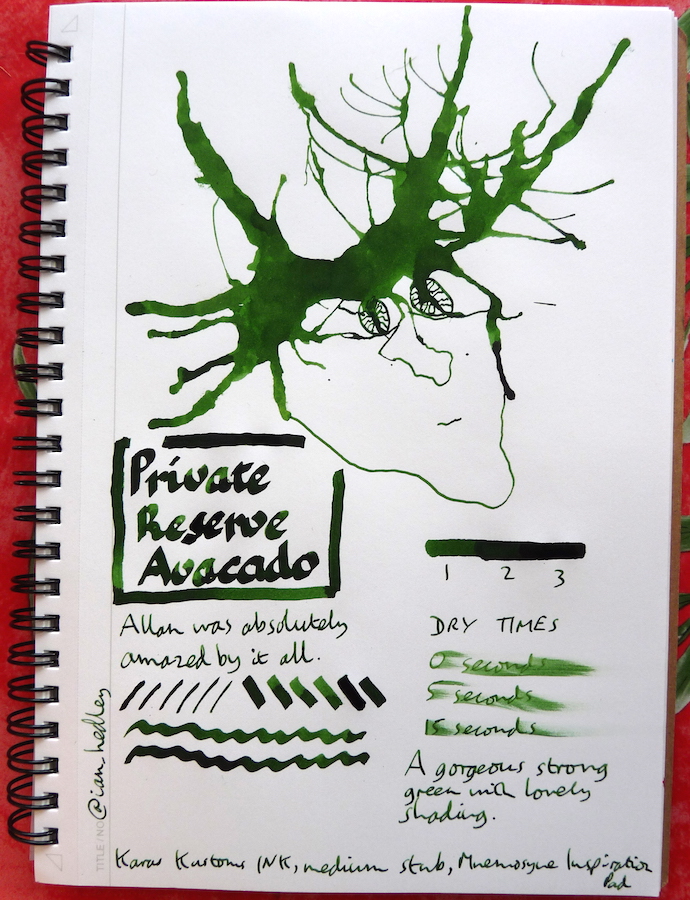 Private
Reserve
Avacado
1 2 3
Allan was absolutely
amazed by it all.
DRY TIMES
0 seconds
5 seconds
15 seconds
A gorgeous strong
green with lovely
shading.
@ian_hedley
TITLE/NO
Karas Kustoms INK, medium stub, Mnemosyne Inspiration
Pad